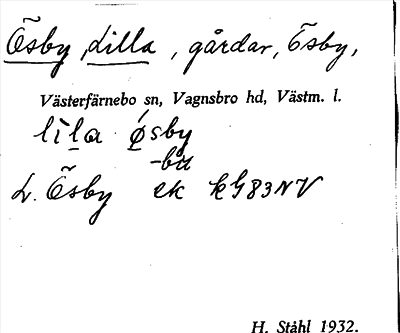 Ösby, Lilla, gårdar, Ösby,
Västerfärnebo sn, Vagnsbro hd, Västm. l.
lìla ǿsby
-by
L. Ösby ek kG83NV
H. Ståhl 1932.